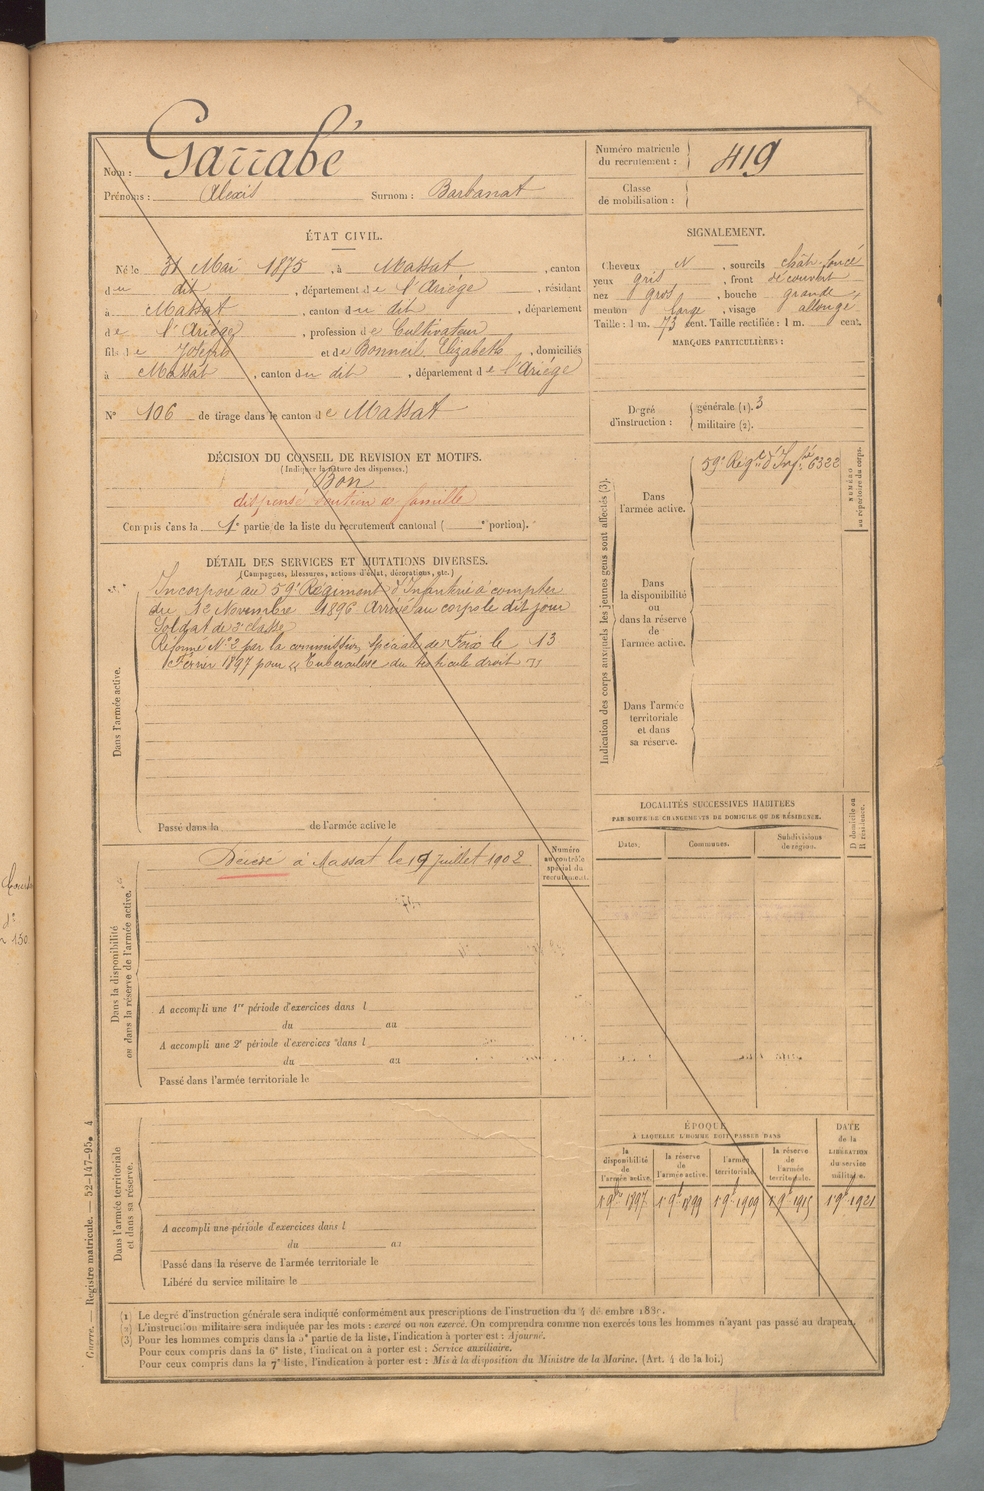 Nom : Garrabé
Prénoms : Alexis Surnom : Barbanat
Numéro matricule du recrutement : 419
Classe de mobilisation :
ÉTAT CIVIL.
Né le 31 Mai 1875, à Massat, canton
du dit, département de l'Ariége, résidant
à Massat, canton du dit, département
de l'Ariége, profession de Cultivateur
fils de Joseph et de Bonneil Elizabeth, domiciliés
à Massat, canton du dit, département de l'Ariége
N° 106 de tirage dans le canton de Massat
SIGNALEMENT.
Cheveux N, sourcils chât. foncé
yeux gris, front découvert
nez gros, bouche grande
menton large, visage allongé
Taille : 1 m. 73 cent. Taille rectifiée : 1 m. cent.
MARQUES PARTICULIÈRES :
Degré d'instruction : générale (1). 3
militaire (2).
DÉCISION DU CONSEIL DE REVISION ET MOTIFS.
(Indiquer la nature des dispenses.)
Bon
dispensé soutien de famille
Compris dans la 1e partie de la liste du recrutement cantonal ( e portion).
DÉTAIL DES SERVICES ET MUTATIONS DIVERSES.
(Campagnes, blessures, actions d'éclat, décorations, etc.)
Dans l'armée active.
Incorporé au 59e Régiment d'Infanterie à compter
du 12 Novembre 1896 Arrivé au corps le dit jour
Soldat de 2e classe
Réformé N° 2 par la commission spéciale de Foix le 13
Février 1897 pour « Tuberculose du testicule droit »
Passé dans la de l'armée active le
Indication des corps auxquels les jeunes gens sont affectés (3).
Dans l'armée active. 59e Régt d'Infie 6322
NUMÉRO au répertoire du corps.
Dans la disponibilité ou dans la réserve de l'armée active.
Dans l'armée territoriale et dans sa réserve.
LOCALITÉS SUCCESSIVES HABITÉES
PAR SUITE DE CHANGEMENTS DE DOMICILE OU DE RÉSIDENCE.
Dates. Communes. Subdivisions de région. D domicile ou R résidence.
Dans la disponibilité ou dans la réserve de l'armée active.
Décédé à Massat le 19 Juillet 1902
Numéro au contrôle spécial du recrutement.
A accompli une 1re période d'exercices dans l
du au
A accompli une 2e période d'exercices dans l
du au
Passé dans l'armée territoriale le
Dans l'armée territoriale et dans sa réserve.
A accompli une période d'exercices dans l
du au
Passé dans la réserve de l'armée territoriale le
Libéré du service militaire le
ÉPOQUE
À LAQUELLE L'HOMME DOIT PASSER DANS
la disponibilité de l'armée active. la réserve de l'armée active. l'armée territoriale. la réserve de l'armée territoriale.
DATE de la LIBÉRATION du service militaire.
1 9bre 1897 1 9bre 1899 1 9bre 1909 1 9bre 1915 1 9bre 1921
(1) Le degré d'instruction générale sera indiqué conformément aux prescriptions de l'instruction du 4 décembre
(2) L'instruction militaire sera indiquée par les mots : exercé ou non exercé. On comprendra comme non exercés tous les hommes n'ayant pas passé au drapeau.
(3) Pour les hommes compris dans la 5e partie de la liste, l'indication à porter est : Ajourné.
Pour ceux compris dans la 6e liste, l'indication à porter est : Service auxiliaire.
Pour ceux compris dans la 7e liste, l'indication à porter est : Mis à la disposition du Ministre de la Marine. (Art. 4 de la loi.)
Guerre. — Registre matricule. — 52-147-95. 4